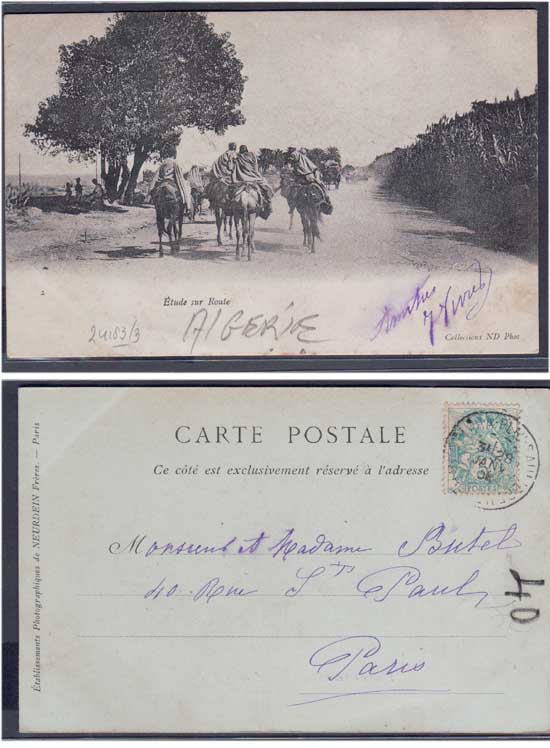 2
Étude sur Route
24183/3
ALGERIE
Amitiés
Collections ND Phot
Établissements Photographiques de NEURDEIN Frères. — Paris
CARTE POSTALE
Ce côté est exclusivement réservé à l'adresse
POSTES
Monsieur et Madame Butel
40 Rue St Paul,
Paris
40